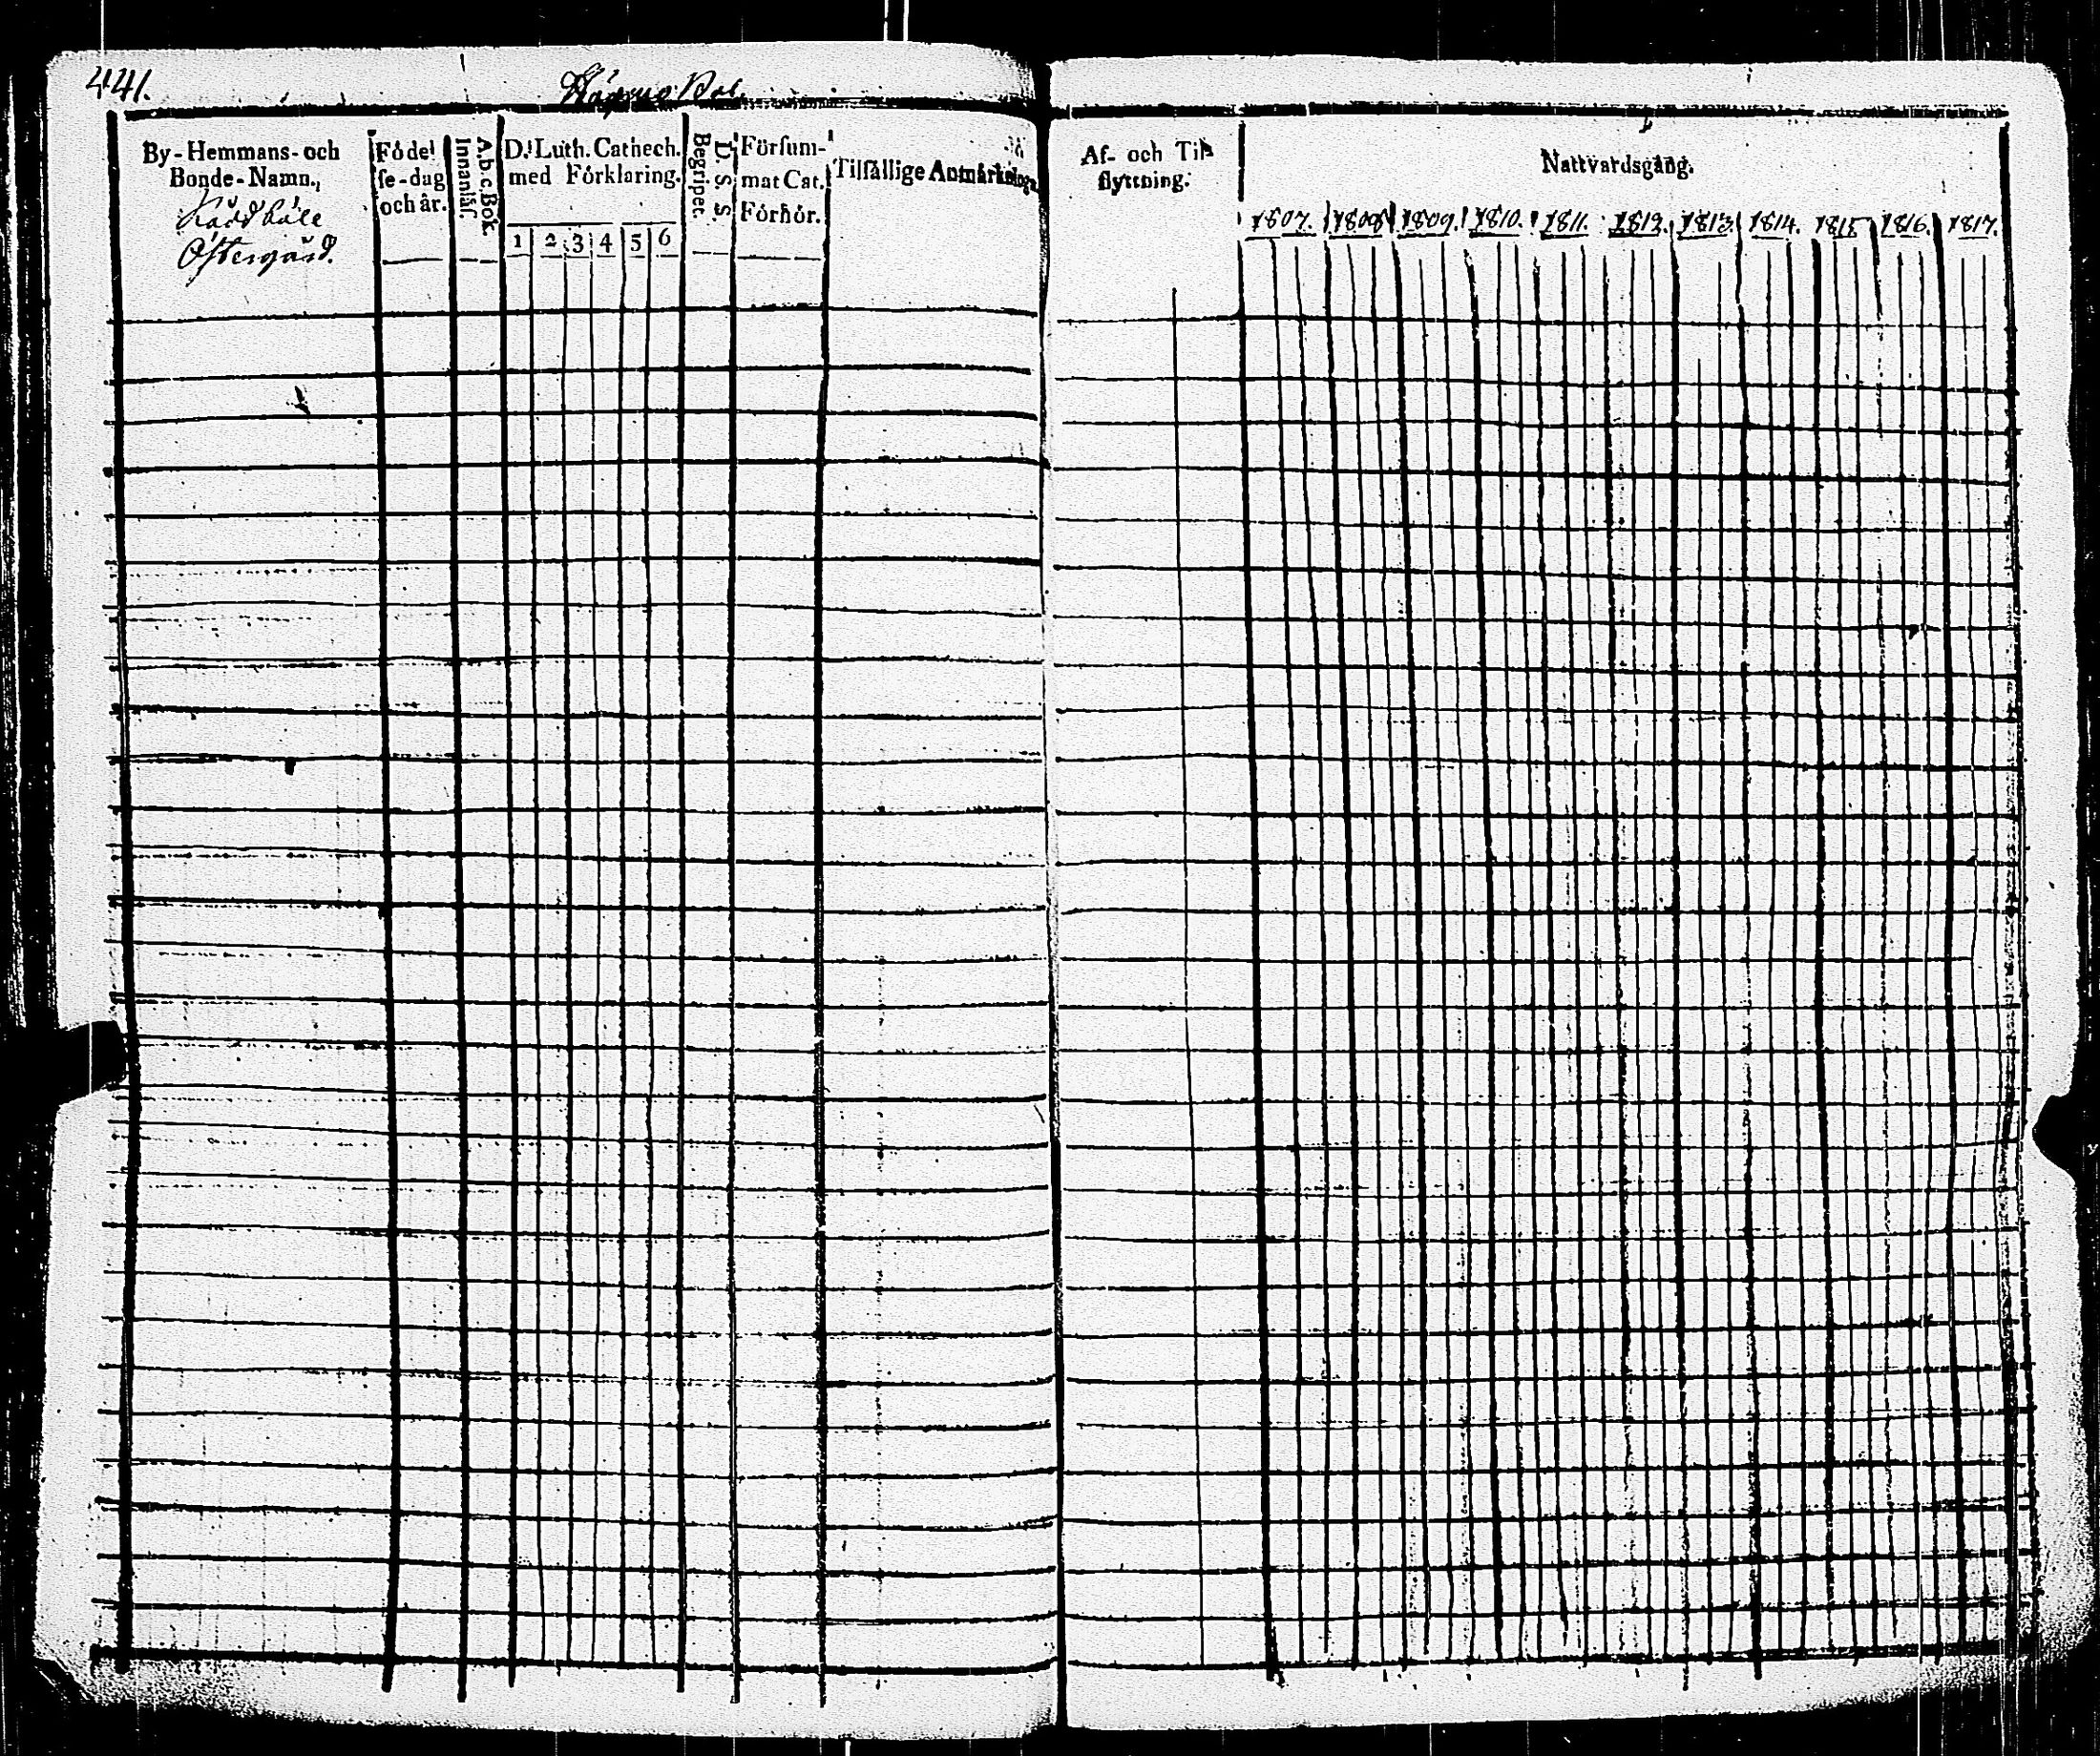 441.
By-Hemmans- och
Bonde-Namn.
Östergård.
Födel
se-dag
och år.
A.b.c.Bok.
Innanläſ.
D:i Luth. Cathech.
med Förklaring.
1 2 3 4 5 6
D. S. S.
Begriper.
Förſum-
mat Cat.
Förhör.
Tilfällige Anmärkningar
Af- och Til-
flyttning.
Nattvardsgång.
1807. 1808 1809. 1810. 1811. 1812. 1813. 1814. 1815 1816. 1817.